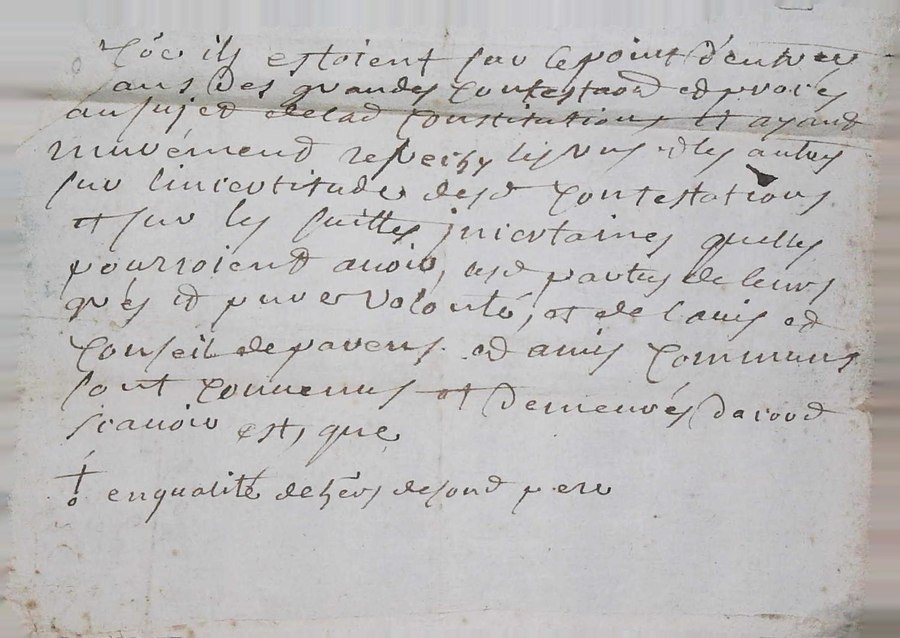 ils estoient sur le point d'entrer
dans des grandes contestaōns et procés
au sujet de lad constitution et ayant
meurement reflechy les uns et les autres
sur lincertitude desd contestations
et sur les suittes incertaines quelles
pourroient avoir, lesd parties de leurs
grés et pure volonté, et de lavis et
conseil de parens et amis communs
sont convenus et demeurés dacord
scavoir est, que
en qualité de hérs de sond pere